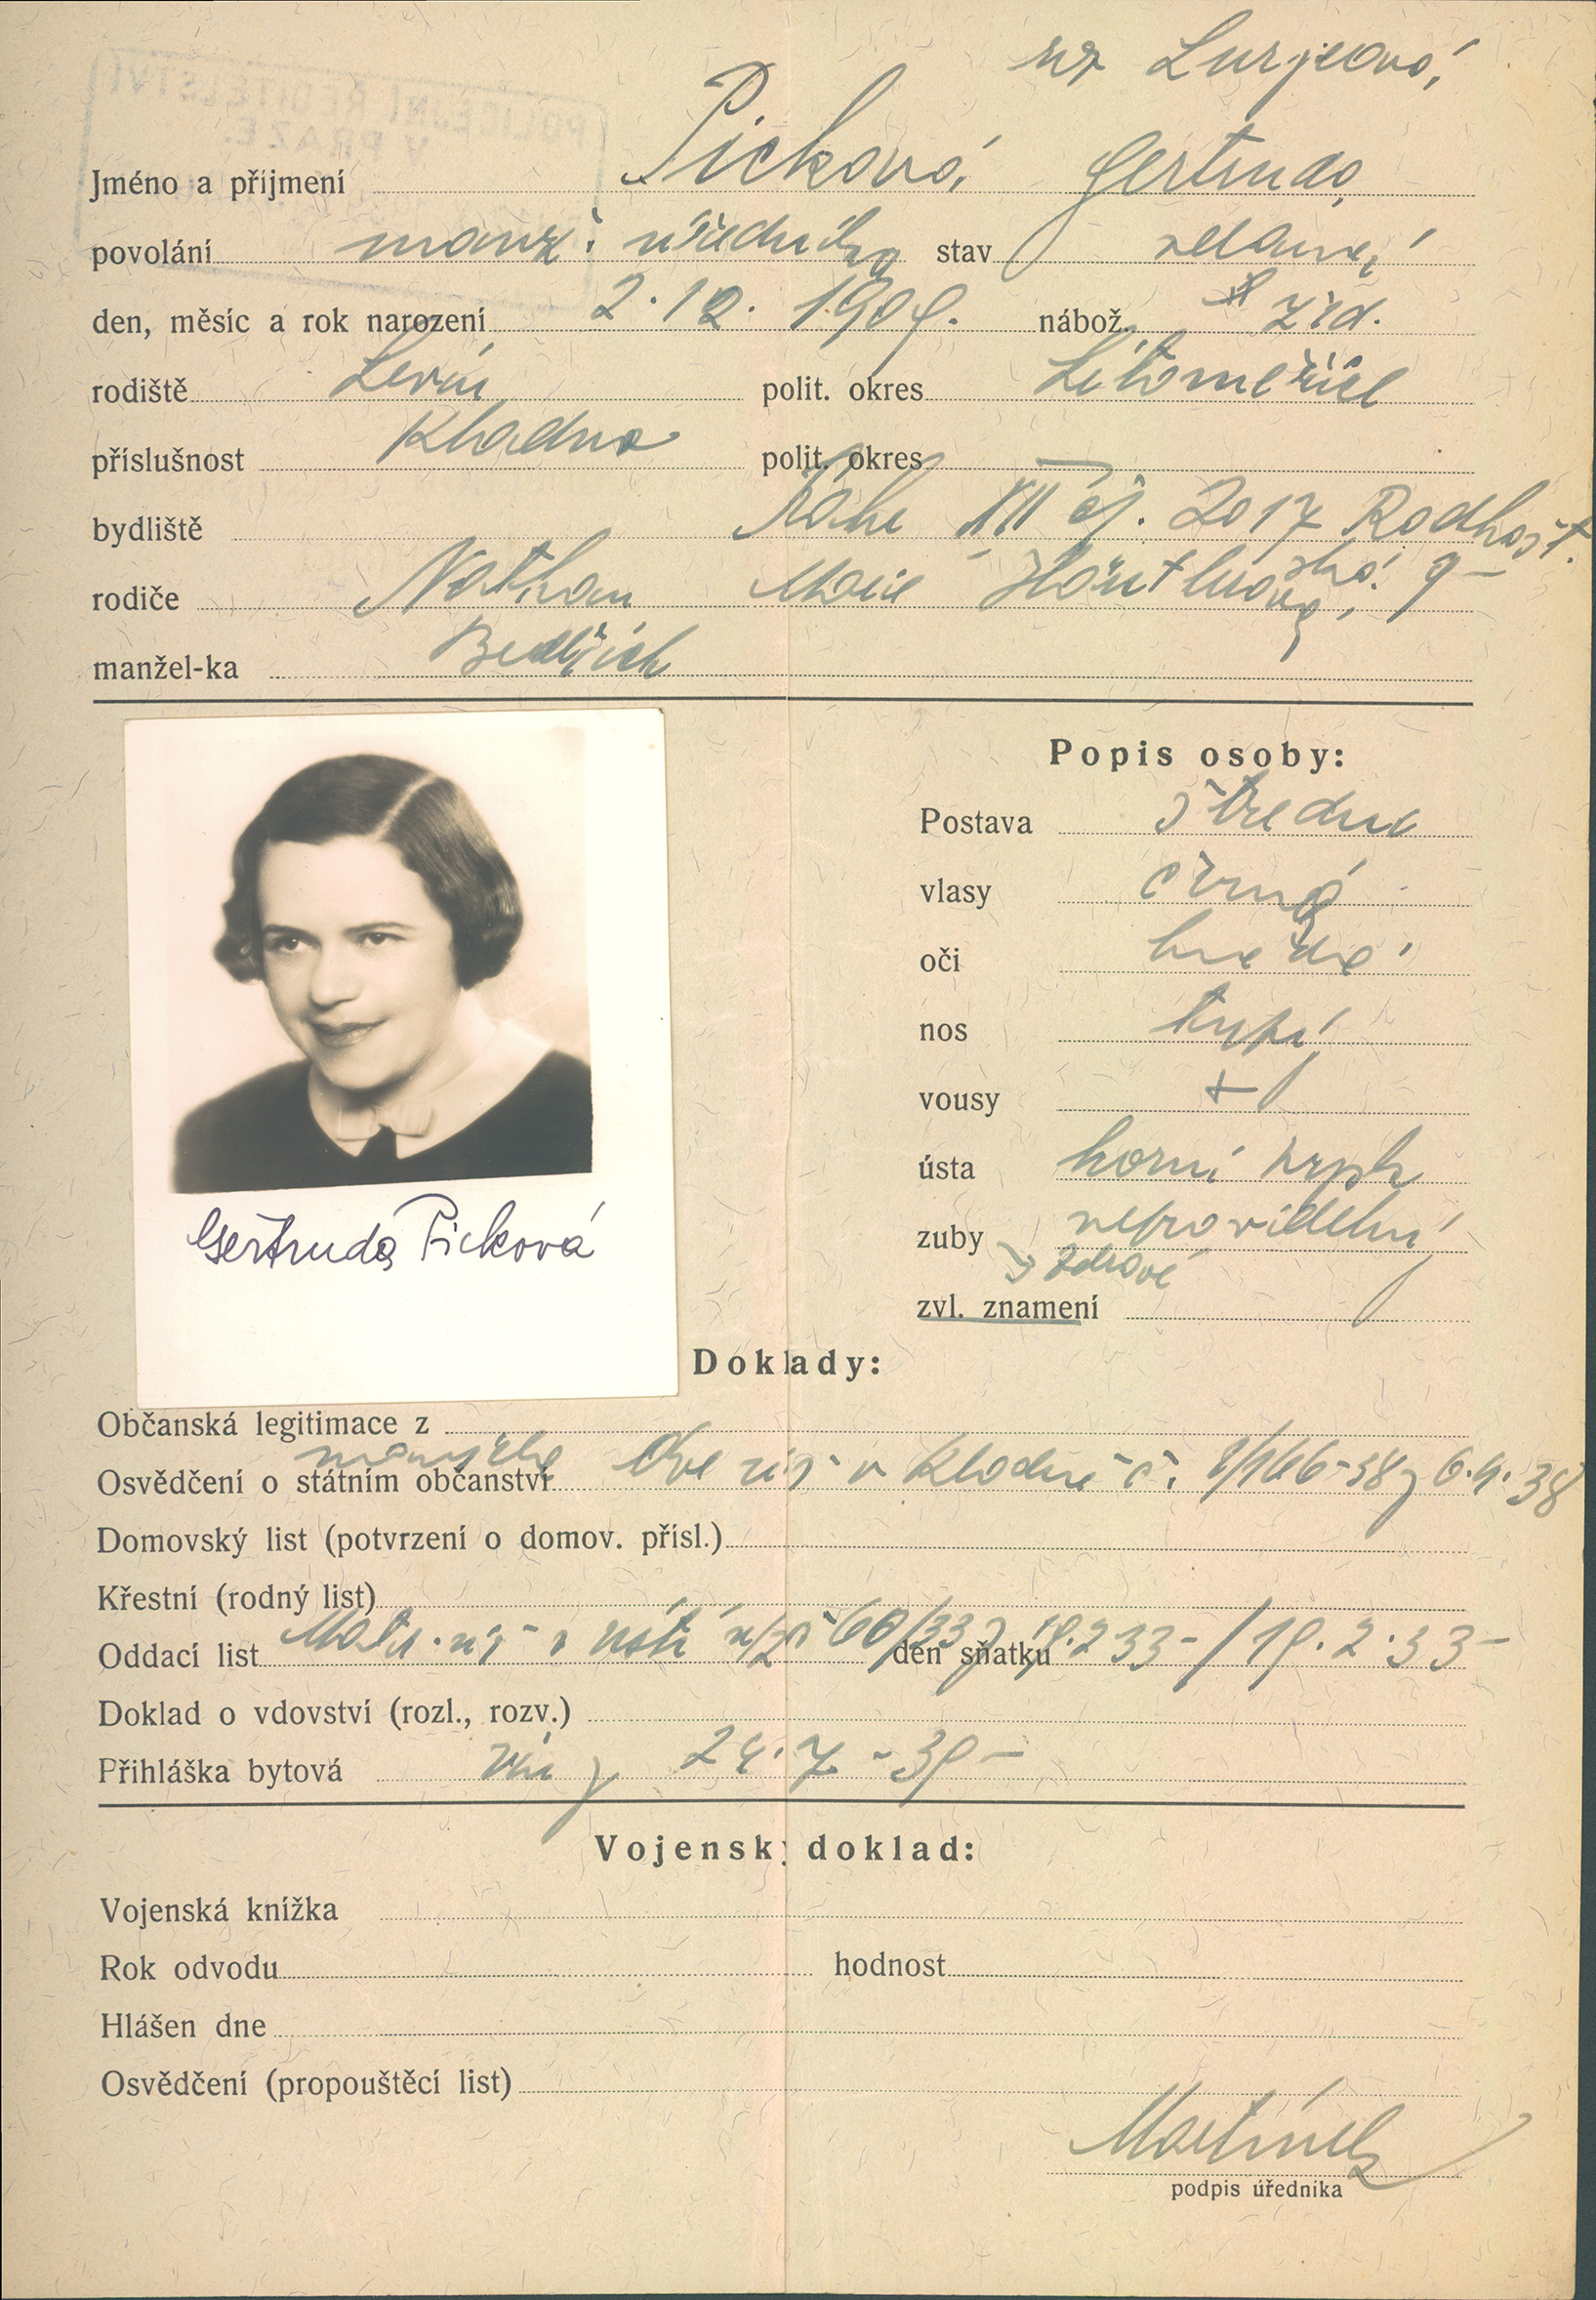 roz Lurjeová,
Jméno a příjmení Picková Gertruda
povolání manž. úředníka stav vdaná
den, měsíc a rok narození 2.12.1909. nábož. žid.
rodiště Levín polit. okres Litoměřice
příslušnost Kladno polit. okres
bydliště Praha XII čj. 2017 Radhošť.
ská 9
rodiče Nathan Marie
manžel-ka Bedřich
Popis osoby:
Postava střední
vlasy černé
oči hnědé
nos tupý
vousy
ústa horní
zuby nepravidelný
zdravé
zvl. znamení
Gertruda Picková
Doklady:
Občanská legitimace z
manžela
Osvědčení o státním občanství Okr úř v Kladně č. 6.4.38
Domovský list (potvrzení o domov. přísl.)
Křestní (rodný list)
Oddací list Matr. úř v Ústí n/L č 60/33 z 19.2 33 - den sňatku 19.2.33 -
Doklad o vdovství (rozl., rozv.)
Přihláška bytová z 24.7.-39 -
Vojenský doklad:
Vojenská knížka
Rok odvodu hodnost
Hlášen dne
Osvědčení (propouštěcí list)
Martínek
podpis úředníka
POLICEJNÍ ŘEDITELSTVÍ
V PRAZE.